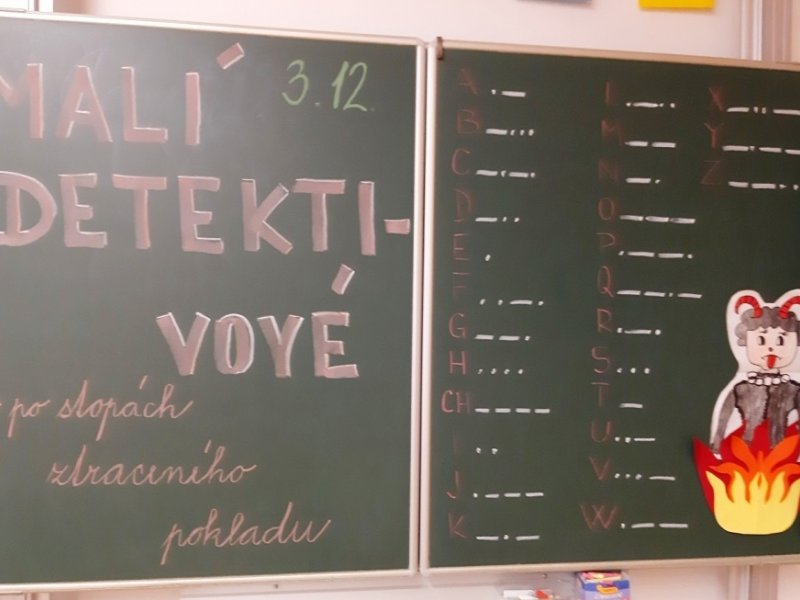 MALÍ 3.12.
DETEKTI-
VOYÉ
po stopách
ztraceného
pokladu
A .—
B —...
C —.—.
D —..
E .
F ..—.
G ——.
H ....
CH ————
I ..
J .———
K —.—
L .—..
M ——
N —.
O ———
P .——.
Q ——.—
R .—.
S ...
T —
U ..—
V ...—
W .——
X —..—
Y —.——
Z ——..